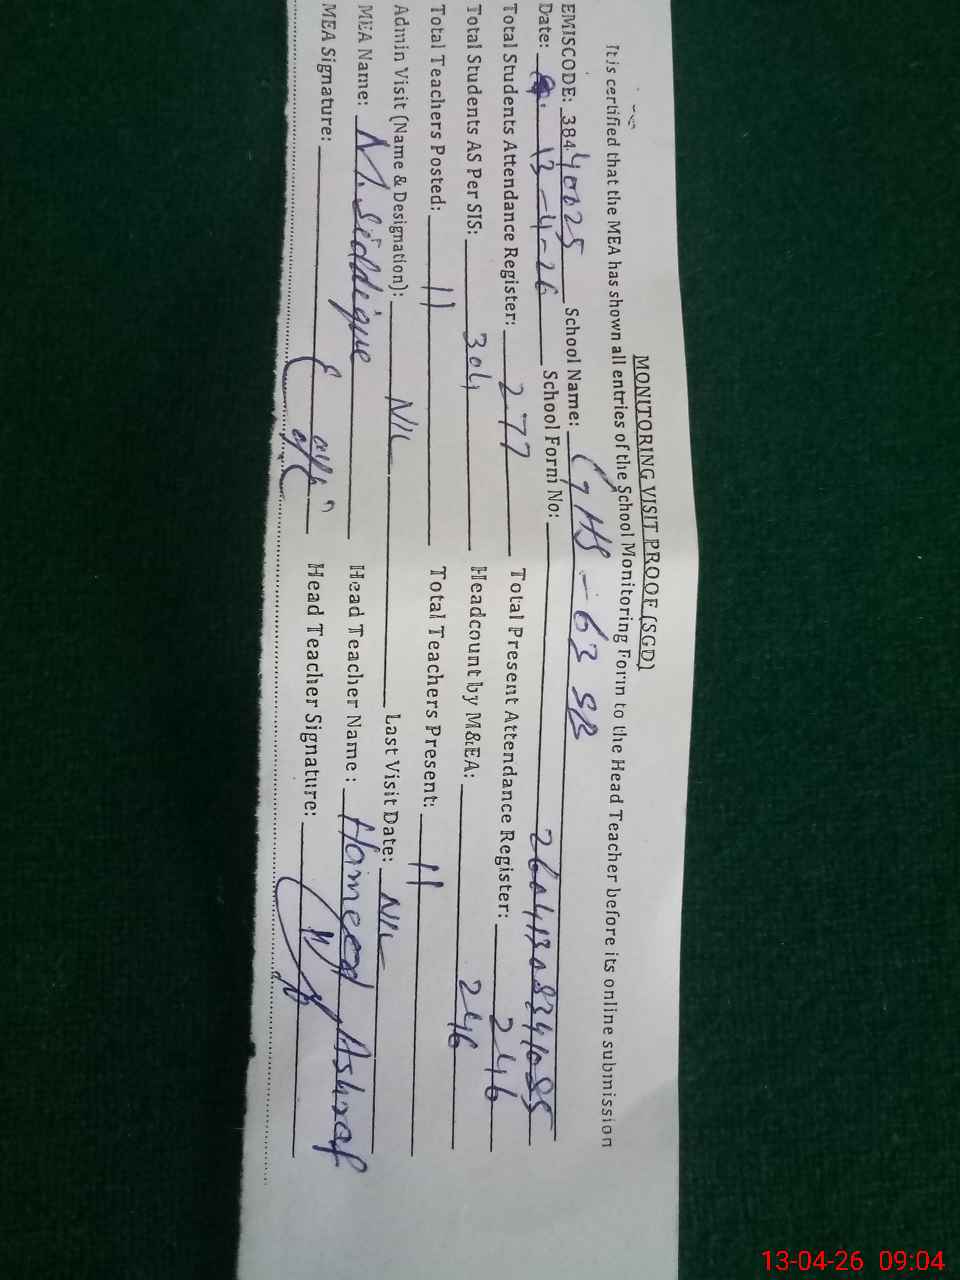 MONITORING VISIT PROOF (SGD)
It is certified that the MEA has shown all entries of the School Monitoring Form to the Head Teacher before its online submission
EMISCODE: 38440025 School Name: GHS - 63 SB
Date: 13-4-26 School Form No:
Total Students Attendance Register: 277 Total Present Attendance Register: 246
Total Students AS Per SIS: 304 Headcount by M&EA: 246
Total Teachers Posted: 11 Total Teachers Present: 11
Admin Visit (Name & Designation): NIL Last Visit Date: NIL
MEA Name: M. Siddique Head Teacher Name: Hameed Ashraf
MEA Signature: Head Teacher Signature:
13-04-26 09:04